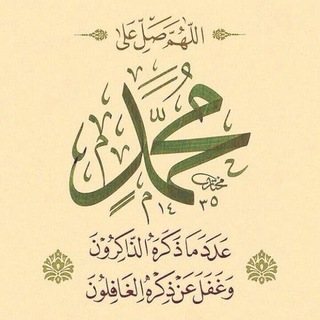 اللَّهُمَّ صَلِّ عَلَى
مُحَمَّدٍ
١٤٣٥
عَدَدَ مَا ذَكَرَهُ الذَّاكِرُونَ
وَغَفَلَ عَنْ ذِكْرِهِ الْغَافِلُونَ